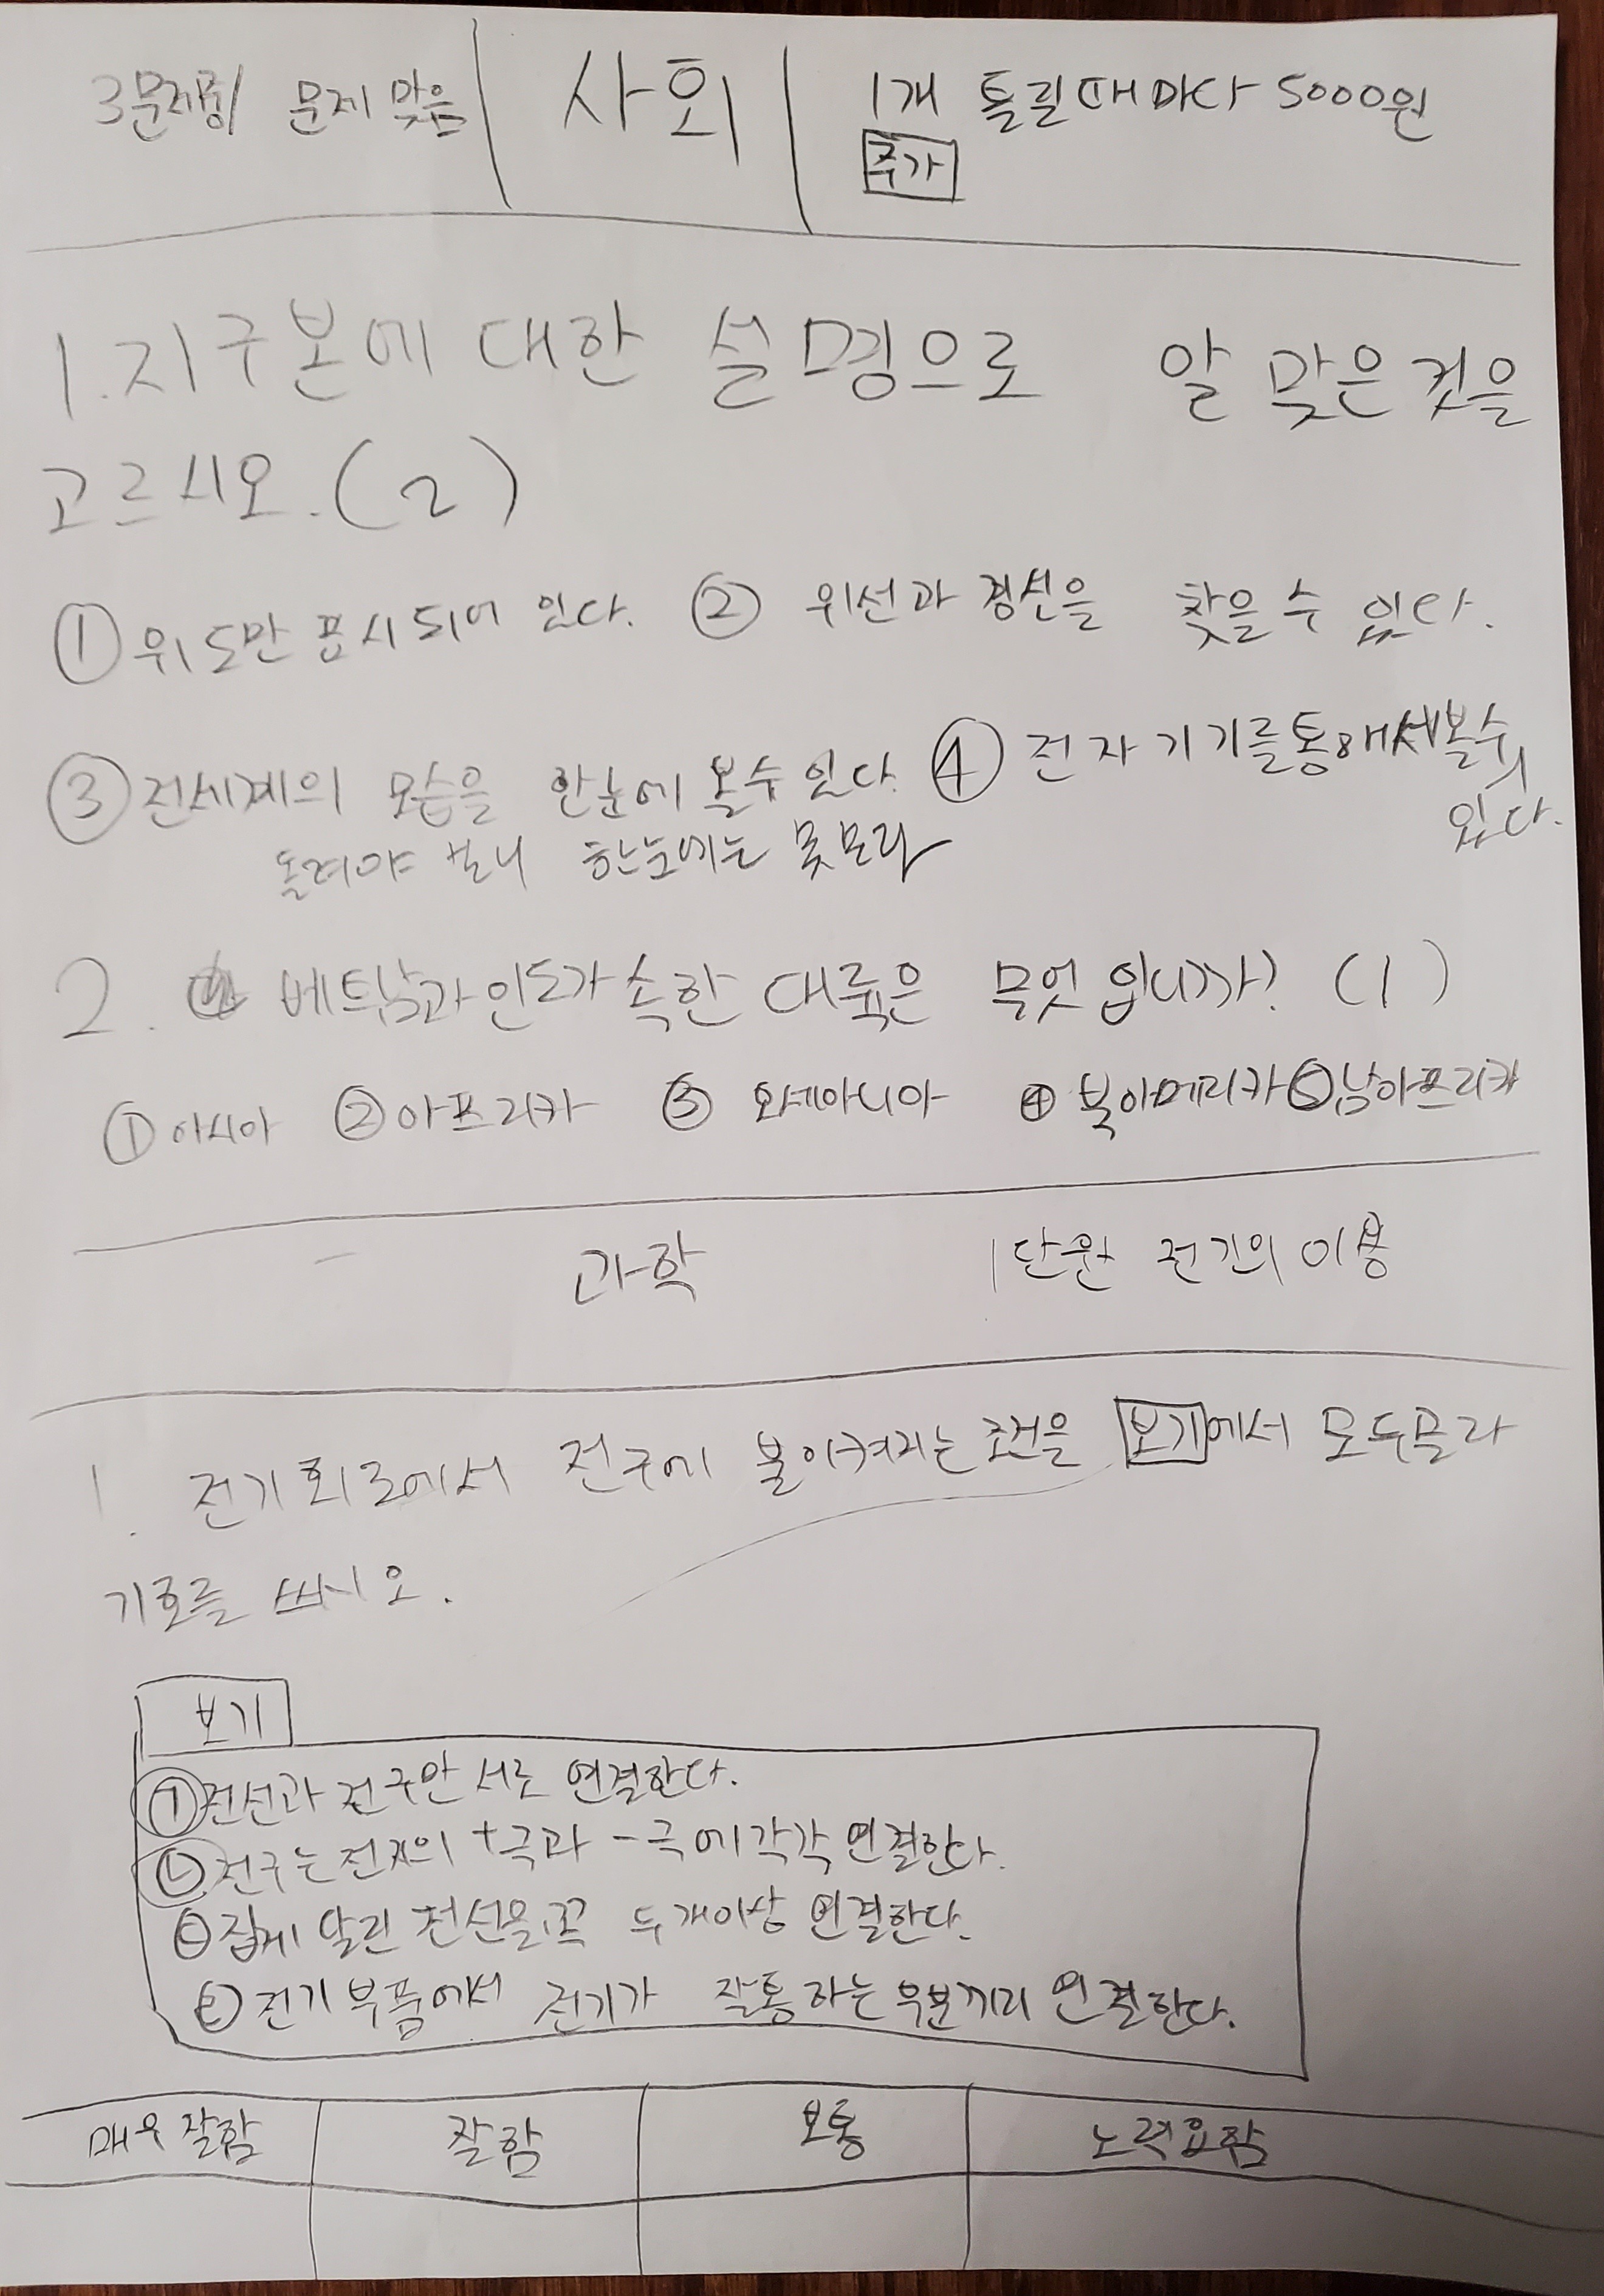 3문제중 문제 맞음 사회 1개 틀릴때마다 5000원
추가
1. 지구본에 대한 설명으로 알 맞은것을
고르시오. (2)
① 위도만 표시되어 있다. ② 위선과 경선을 찾을수 있다.
③ 전세계의 모습을 한눈에 볼수있다. ④ 전자기기를통해서볼수
있다.
돌려야 보니 한눈에는 못모라
2. 베트남과인도가 속한 대륙은 무엇 입니까? (1)
① 아시아 ② 아프리카 ③ 오세아니아 ④ 북아메리카 ⑤ 남아프리카
과학 1단원 전기의 이용
1. 전기회로에서 전구에 불이켜지는 조건을 보기에서 모두골라
기호를 쓰시오.
보기
㉠ 전선과 전구만 서로 연결한다.
㉡ 전구는 전지의 +극과 -극에 각각 연결한다.
㉢ 집게 달린 전선을 꼭 두개이상 연결한다.
㉣ 전기 부품에서 전기가 잘통하는 부분끼리 연결한다.
매우 잘함 잘함 보통 노력요함